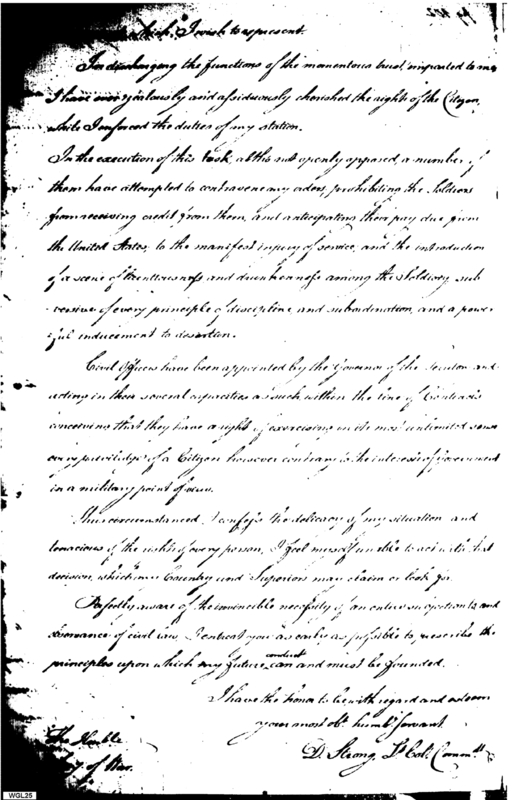 which, I wish to represent.
In discharging the functions of the momentous trust imparted to me
I have ever zealously and assiduously cherished the rights of the Citizen,
while I enforced the duties of my station.
In the execution of this task, altho not openly opposed, a number of
them have attempted to contravene my orders, prohibiting the Soldiers
from receiving credit from them, and anticipating their pay due from
the United States, to the manifest injury of service, and the introduction
of a scene of and drunkenness among the Soldiery, sub
versive of every principle of discipline and subordination, and a power
ful inducement to desertion.
Civil Officers have been appointed by the Governor of the and
acting in their several capacities as such within the line of Contracts
conceiving that they have a right of exercising in its most unlimited sense
every priviledge of a Citizen however contrary to the interests of Government
in a military point of view.
Thus circumstanced, I confess the delicacy of my situation and
tenacious of the rights of every person, I feel myself unable to act with that
decision, which my Country and Superiors may claim or look for.
Perfectly aware of the invincible necessity of an entire subjection to, and
of civil law, I entreat you as early as possible to prescribe the
principles upon which my future conduct can and must be founded.
I have the honor to be with regard and esteem
your most obt. humbl servant
D. Strong Lt Col. Commdt
The Honble
of War.
WGL25